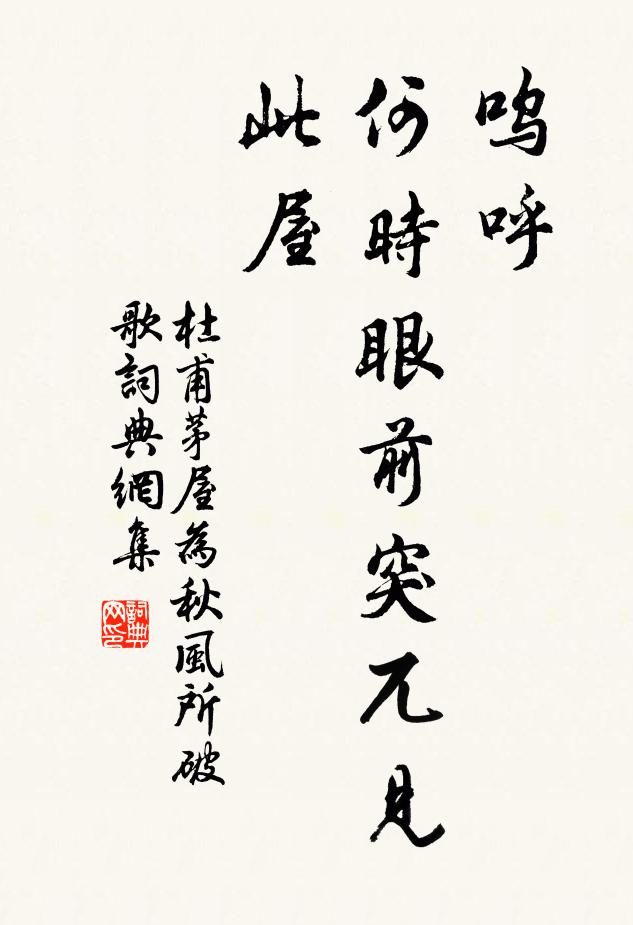 嗚呼
何時眼前突兀見
此屋
杜甫茅屋為秋風所破
歌詞典網集
詞典网印